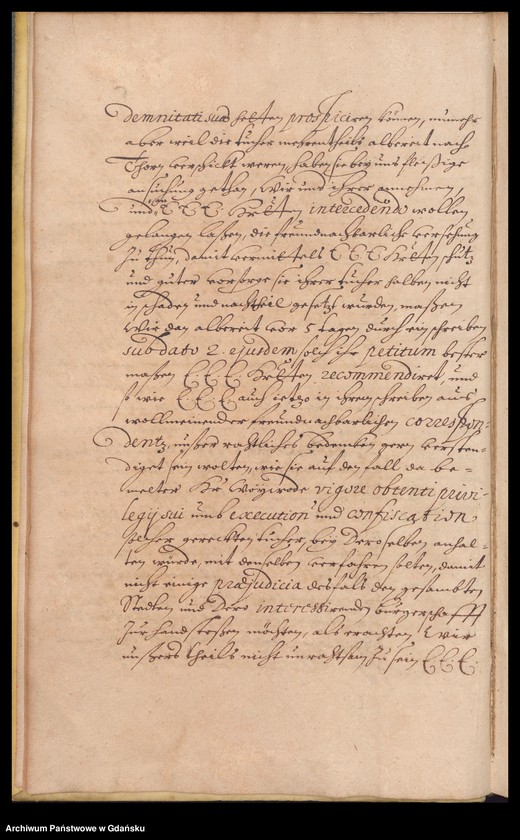 demnitati suae hetten prospiciren können, nunmehr
aber weil die tücher mehrentheils albereit nach
Thorn verschickt weren, haben sie bey uns fleißige
ansuchung gethan, Wir uns ihrer annehmen,
und an E. E. E. Hrltten intercedendo wollen
gelangen laßen, die freundnachbarliche versehung
zu thun, damit vermittels E. E. E. Hrltten schutz
und guter vorsorge sie ihrer tücher halben nicht
in schaden und nachtheil gesetzt würden, maßen
Wir dan albereit vor 5 tagen durch ein schreiben
sub dato 2. ejusdem solch ihr petitum bester
maßen E. E. E. Hrltten recommendiret, und
so wie E. E. E. auch ietzo in ihrem schreiben aus
wollmeinender freundnachbarlichen correspon-
dentz, unßer rathliches bedencken gern versten-
diget sein wolten, wie sie auf den fall da be-
melter Hr Woywode vigore obtenti privi-
legij sui umb execution und confiscation
solcher gereckten tücher, bey Deroselben anhal-
ten würde, mit denselben verfahren solten, damit
nicht einige praejudicia desfals den gesambten
Stedten und Dero interessirenden bürgerschafft
zur hand stoßen möchten, als erachten wir
unßers theils nicht unrathsam zu sein E. E. E.
Archiwum Państwowe w Gdańsku